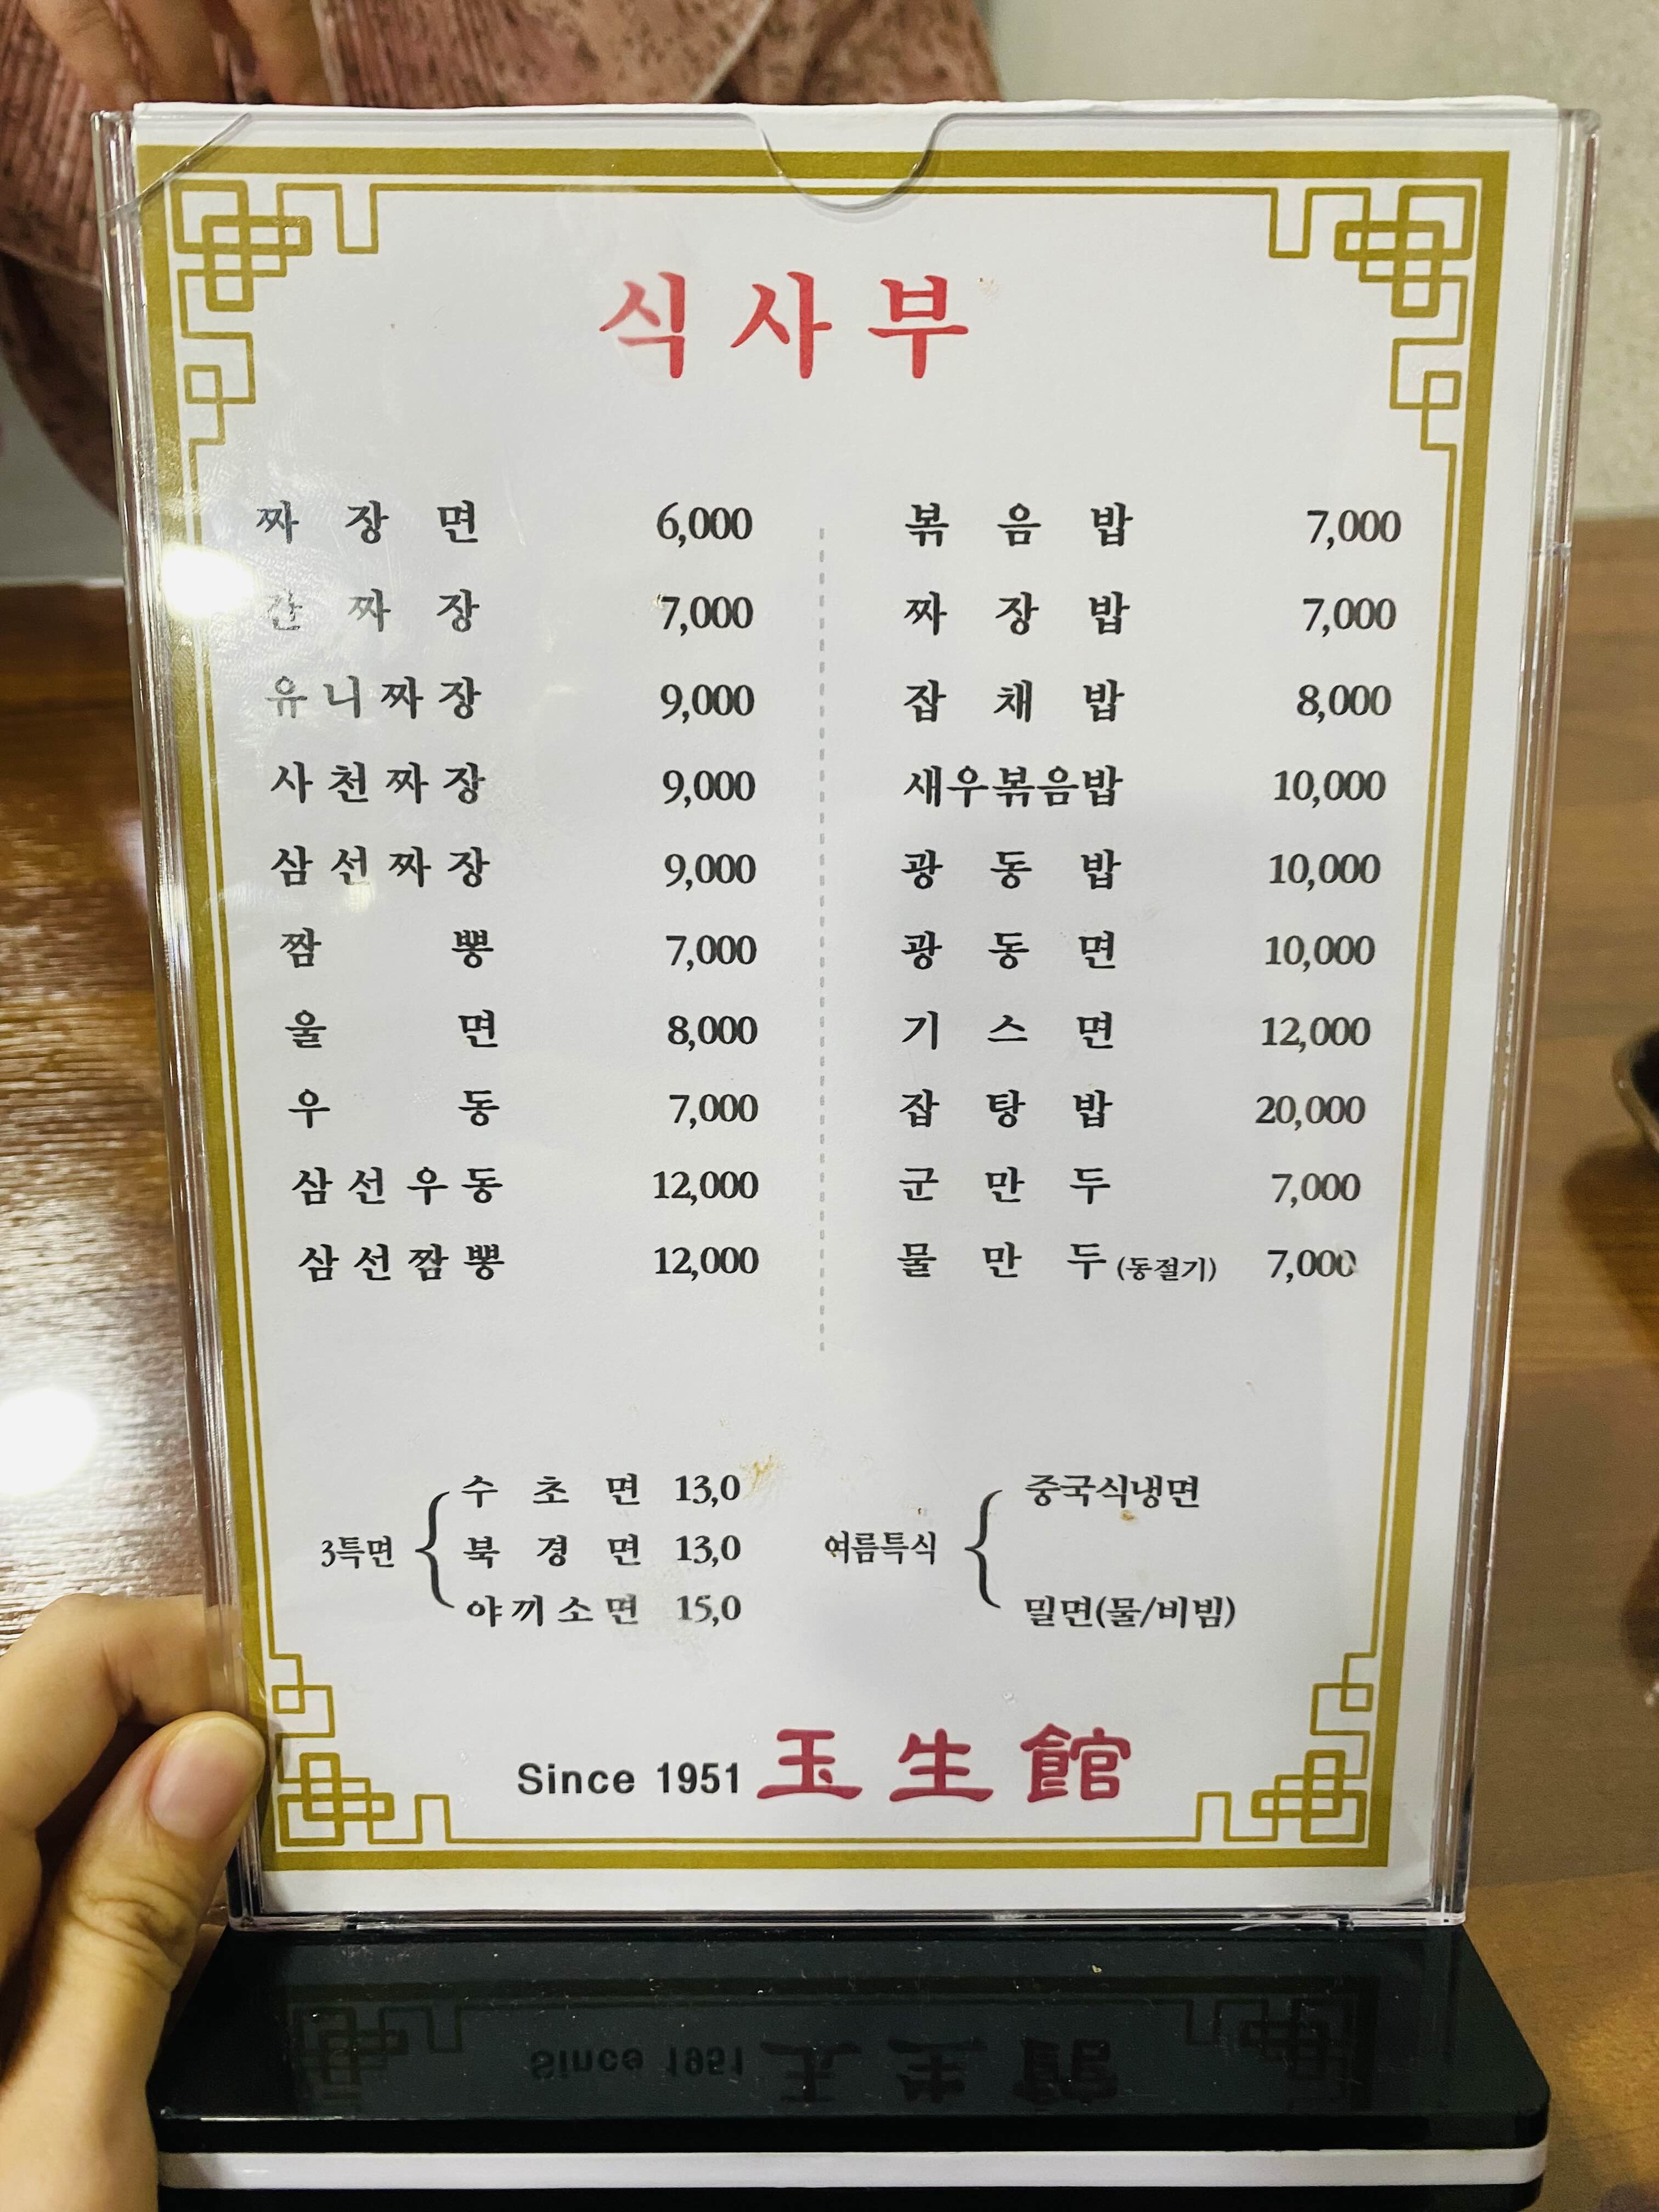 식사부
짜장면 6,000
간짜장 7,000
유니짜장 9,000
사천짜장 9,000
삼선짜장 9,000
짬뽕 7,000
울면 8,000
우동 7,000
삼선우동 12,000
삼선짬뽕 12,000
볶음밥 7,000
짜장밥 7,000
잡채밥 8,000
새우볶음밥 10,000
광동밥 10,000
광동면 10,000
기스면 12,000
잡탕밥 20,000
군만두 7,000
물만두(동절기) 7,000
3특면
수초면 13,0
북경면 13,0
야끼소면 15,0
여름특식
중국식냉면
밀면(물/비빔)
Since 1951 玉生館